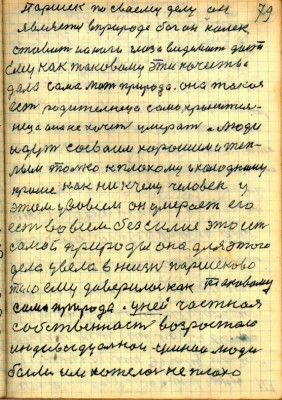 79
Паршек по своему делу он
является в природе богом человек
ему как таковому эти качества
дала сама мать природа. она такая
есть родительница само хранитель-
ница она не хочет умирать. Люди
идут со своим хорошим и теп-
лым только к плохому и холодному
кроме как ни к чему человек у
этом условием он умерает его
есть во всем безсилие это есть
самой природы она для этого
дела ввела в жизнь паршеково
тело ему доверила как таковому
сама природа. у ней частная
собственность возростала
индивидуалной люди
были им хотелос не плохо